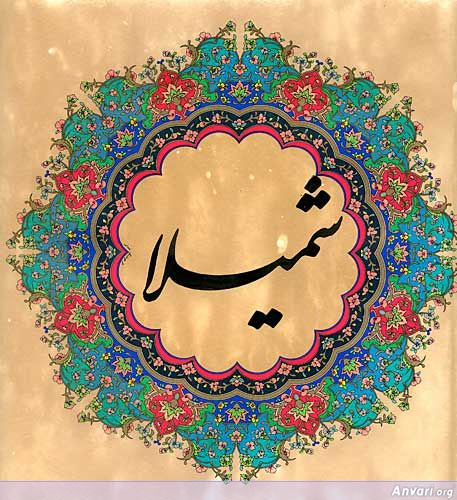 شمیلا
Anvari.org